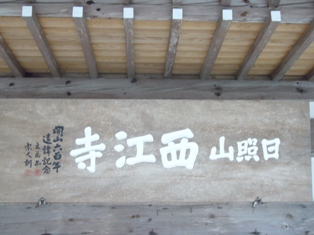 日照山西江寺
開山六百年
遠諱記念